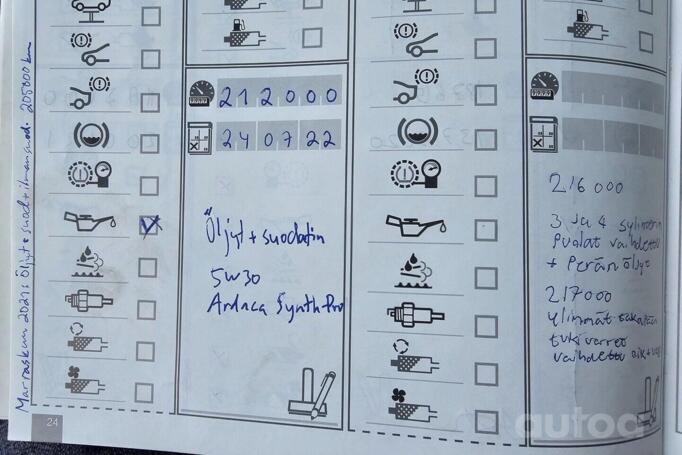 Marraskuu 2021: Öljyt + suod + ilmansuod. 205000 km
212000
24 07 22
Öljyt + suodatin
5W30
Ardeca Synth Pro
216 000
3 ja 4 sylinterin
Puolat vaihdettu
+ Perän öljyt
217000
ylimmät takatän
tukivarret
vaihdettu oik +
24
autoa